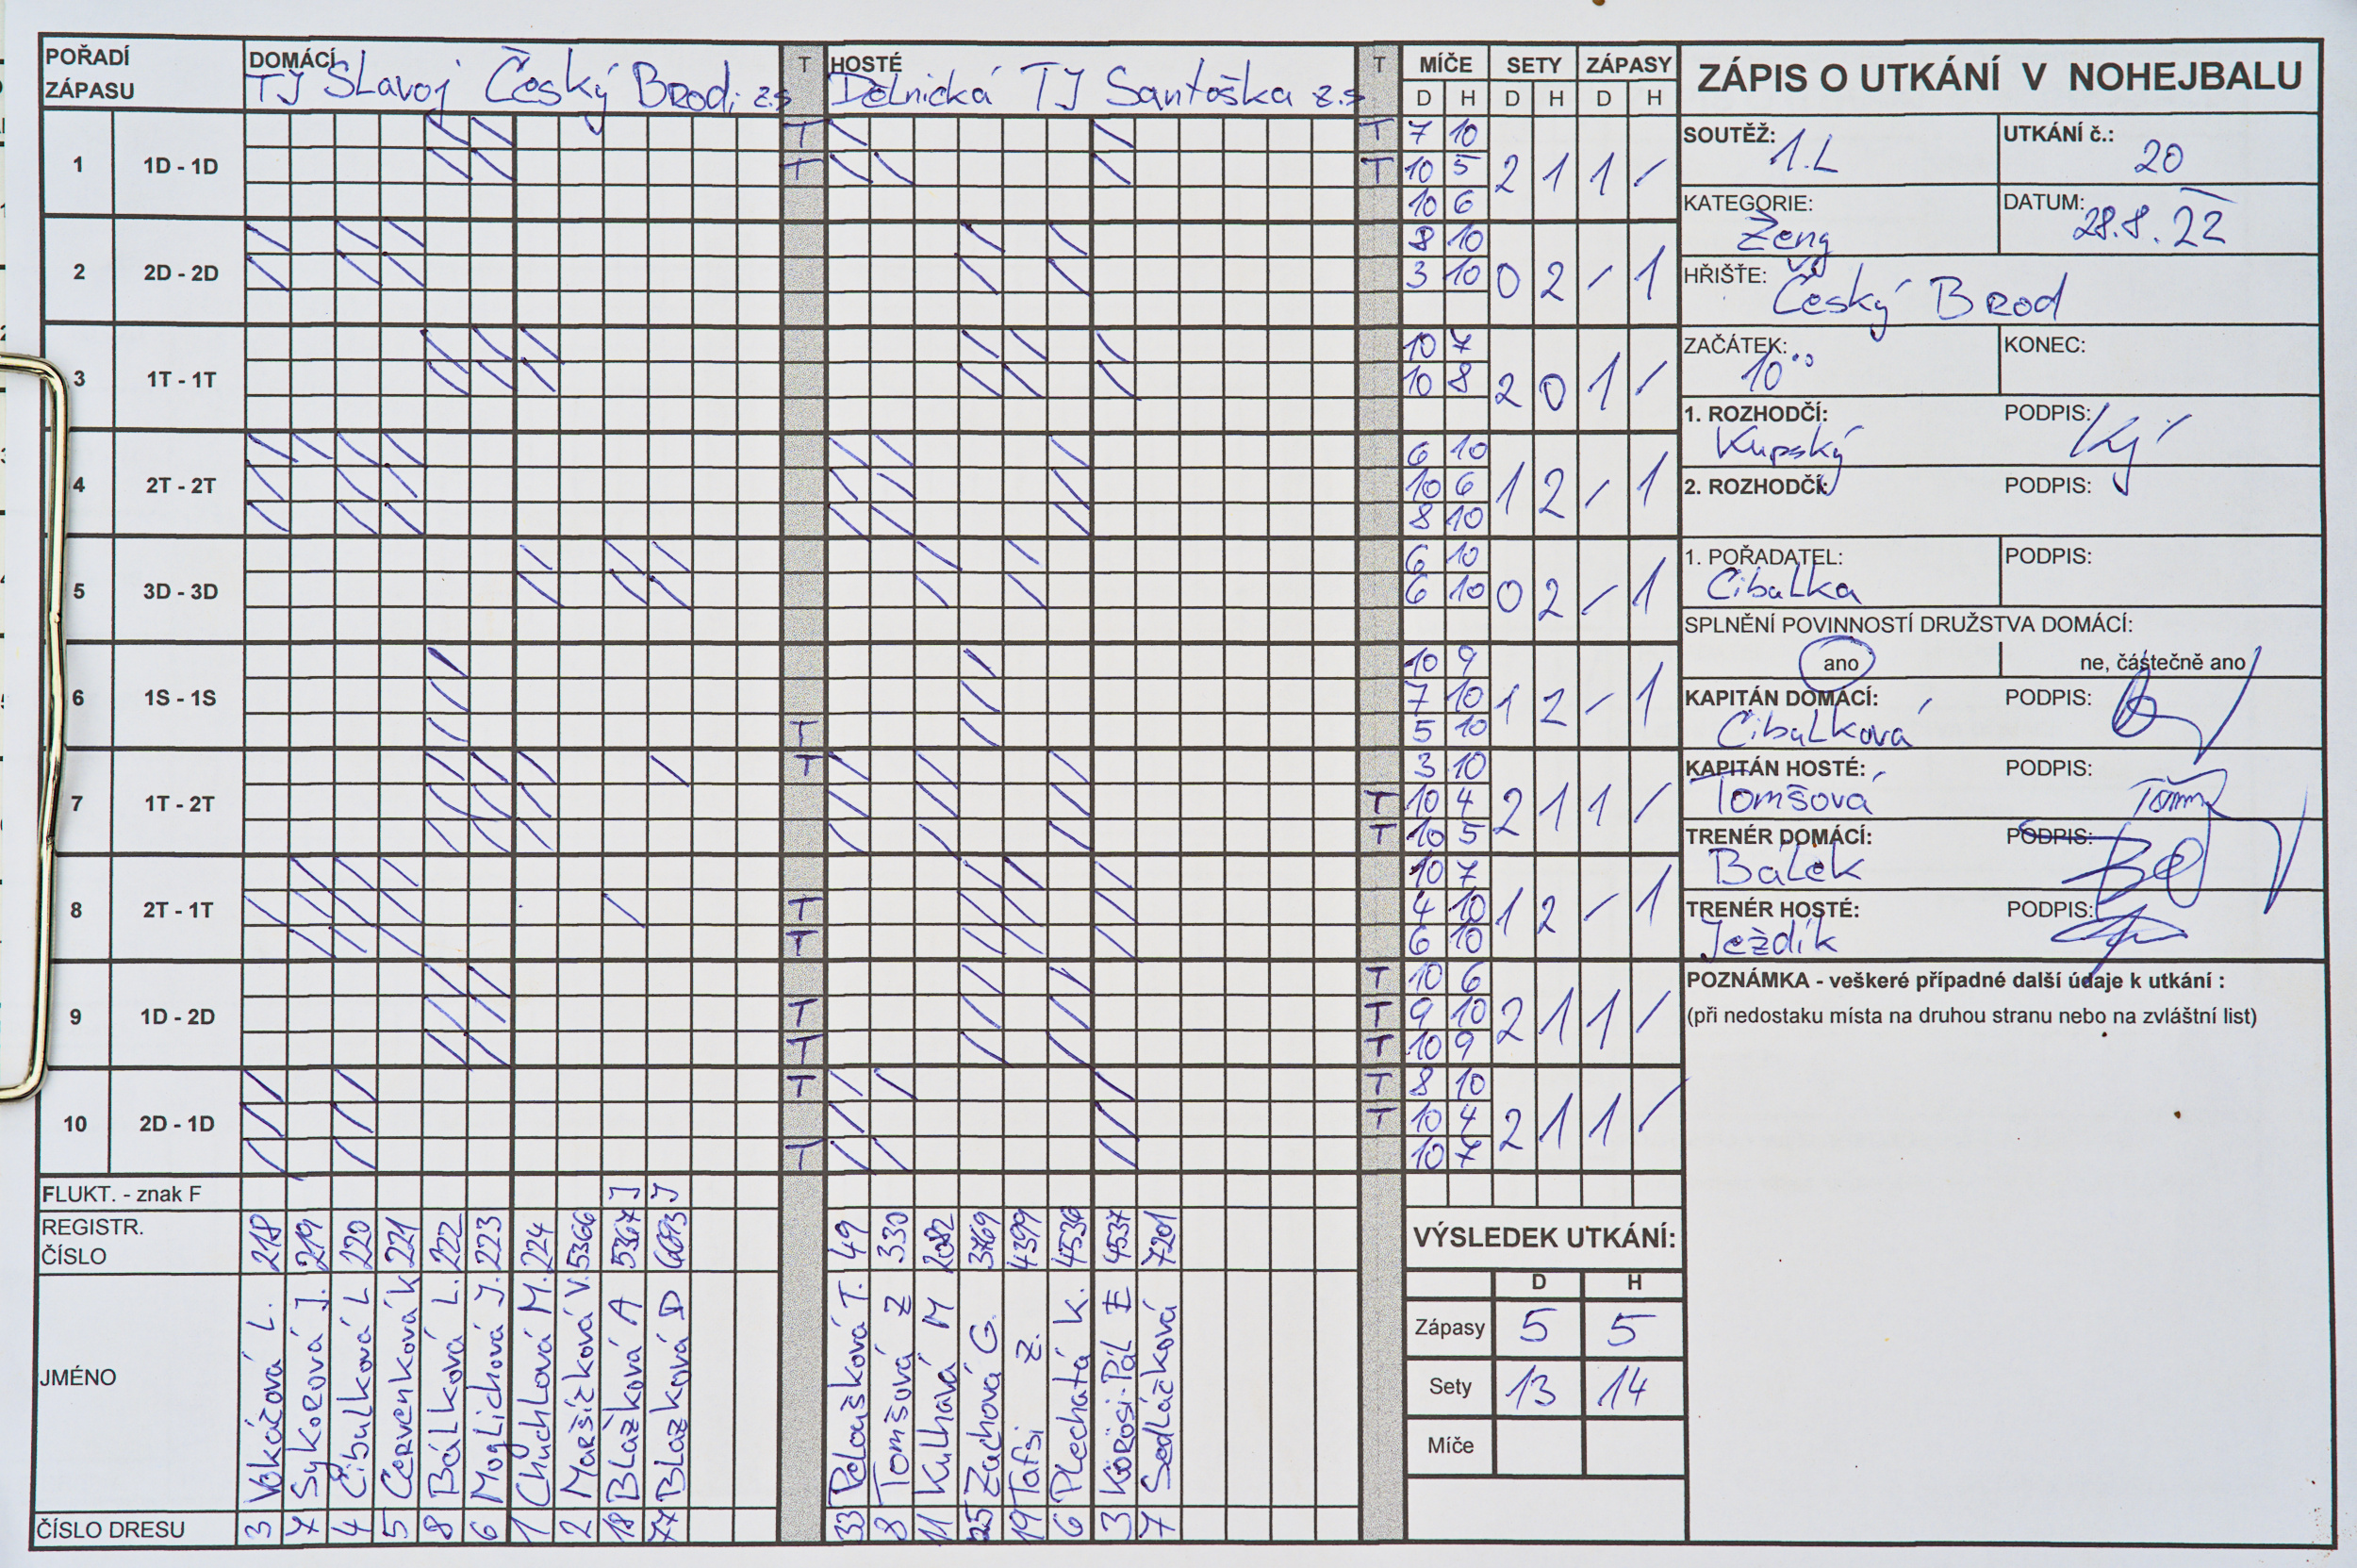 POŘADÍ ZÁPASU
DOMÁCÍ TJ Slavoj Český Brod, z.s
T
HOSTÉ Dělnická TJ Santoška z.s
T
MÍČE SETY ZÁPASY
D H D H D H
1 1D - 1D T T T T 7 10 10 5 10 6 2 1 1 /
2 2D - 2D 8 10 3 10 0 2 / 1
3 1T - 1T 10 7 10 8 2 0 1 /
4 2T - 2T 6 10 10 6 8 10 1 2 / 1
5 3D - 3D 6 10 6 10 0 2 / 1
6 1S - 1S T 10 9 7 10 5 10 1 2 - 1
7 1T - 2T T T T 3 10 10 4 10 5 2 1 1 /
8 2T - 1T T T 10 7 4 10 6 10 1 2 / 1
9 1D - 2D T T T T T 10 6 9 10 10 9 2 1 1 /
10 2D - 1D T T T T 8 10 10 4 10 7 2 1 1 /
FLUKT. - znak F
REGISTR. ČÍSLO 218 219 220 221 222 223 224 5366 5367 J 6693 J 49 330 2082 3769 4399 4536 4537 7201
JMÉNO
Vokáčová L.
Sykorová J.
Cibulková L
Červenková K
Bálková L.
Moglichová J.
Chuchlová M.
Maršíčková V.
Blažková A
Blažková D
Peloušková T.
Tomšová Z
Kulhavá M
Zachová G.
Tafsi Z.
Plechatá K.
Körösi-Pál E
Sedláčková
ČÍSLO DRESU 3 7 4 5 8 6 1 2 18 77 33 8 11 25 19 6 3 7
VÝSLEDEK UTKÁNÍ:
D H
Zápasy 5 5
Sety 13 14
Míče
ZÁPIS O UTKÁNÍ V NOHEJBALU
SOUTĚŽ: 1.L UTKÁNÍ č.: 20
KATEGORIE: Ženy DATUM: 28.8.22
HŘIŠŤE: Český Brod
ZAČÁTEK: 10⁰⁰ KONEC:
1. ROZHODČÍ: Kupský PODPIS:
2. ROZHODČÍ: PODPIS:
1. POŘADATEL: Cibulka PODPIS:
SPLNĚNÍ POVINNOSTÍ DRUŽSTVA DOMÁCÍ:
ano ne, částečně ano
KAPITÁN DOMÁCÍ: Cibulková PODPIS:
KAPITÁN HOSTÉ: Tomšová PODPIS:
TRENÉR DOMÁCÍ: Bálek PODPIS:
TRENÉR HOSTÉ: Ježdík PODPIS:
POZNÁMKA - veškeré případné další údaje k utkání :
(při nedostaku místa na druhou stranu nebo na zvláštní list)